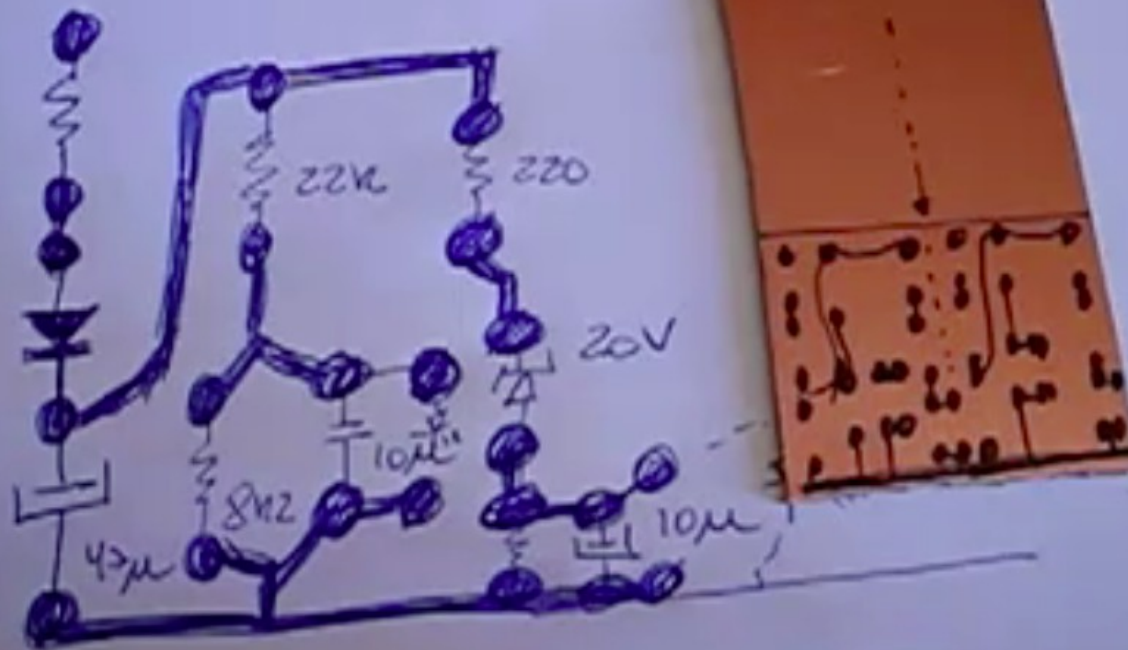 22K
220
20V
10µ
8K2
10µ
47µ